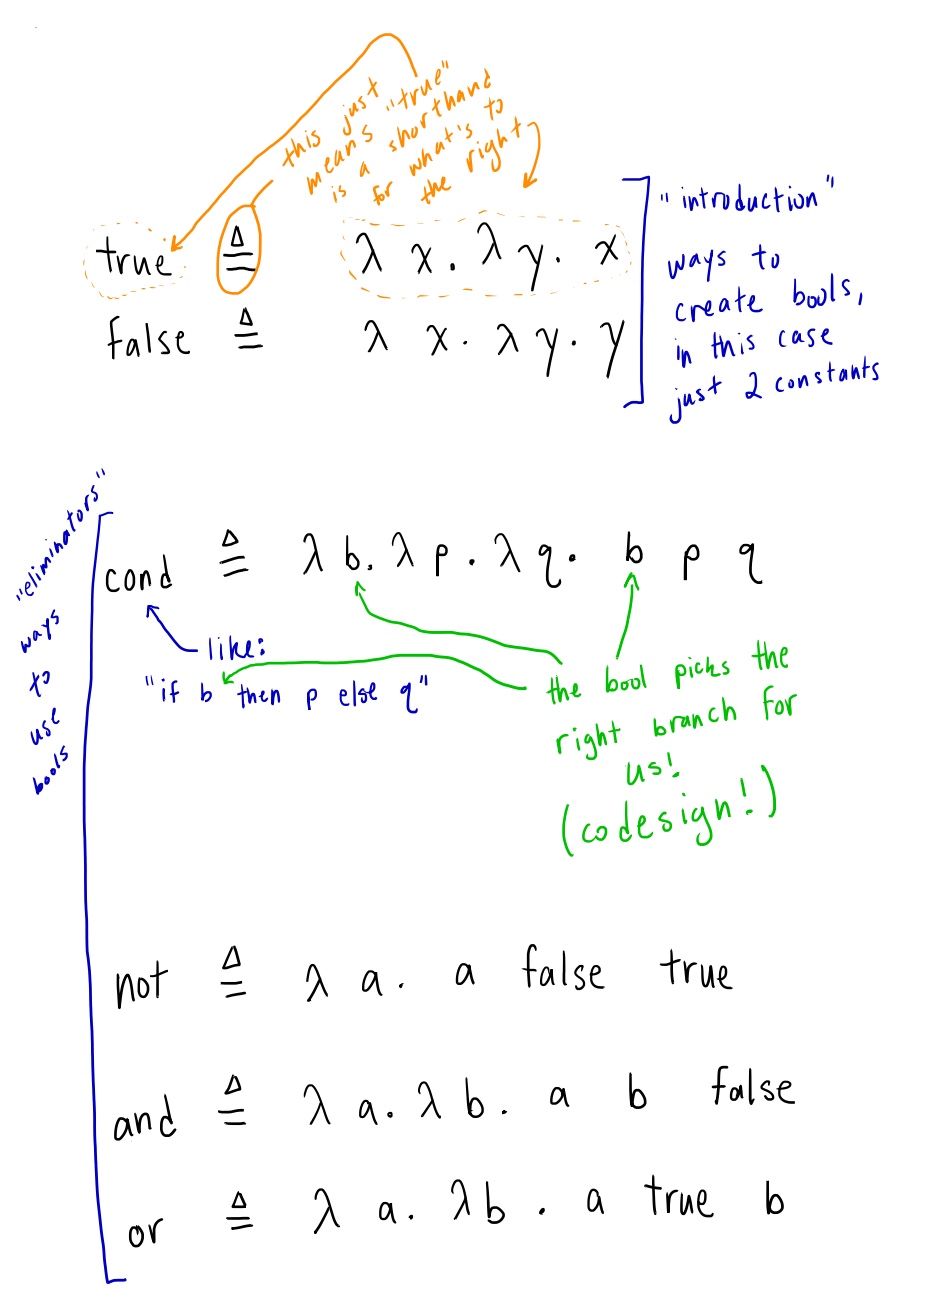 this just
means "true"
is a shorthand
for what's to
the right
true ≜ λ x. λ y. x
false ≜ λ x. λ y. y
"introduction"
ways to
create bools,
in this case
just 2 constants
"eliminators"
ways
to
use
bools
cond ≜ λ b. λ p. λ q. b p q
like:
"if b then p else q"
the bool picks the
right branch for
us!
(codesign!)
not ≜ λ a. a false true
and ≜ λ a. λ b. a b false
or ≜ λ a. λ b. a true b